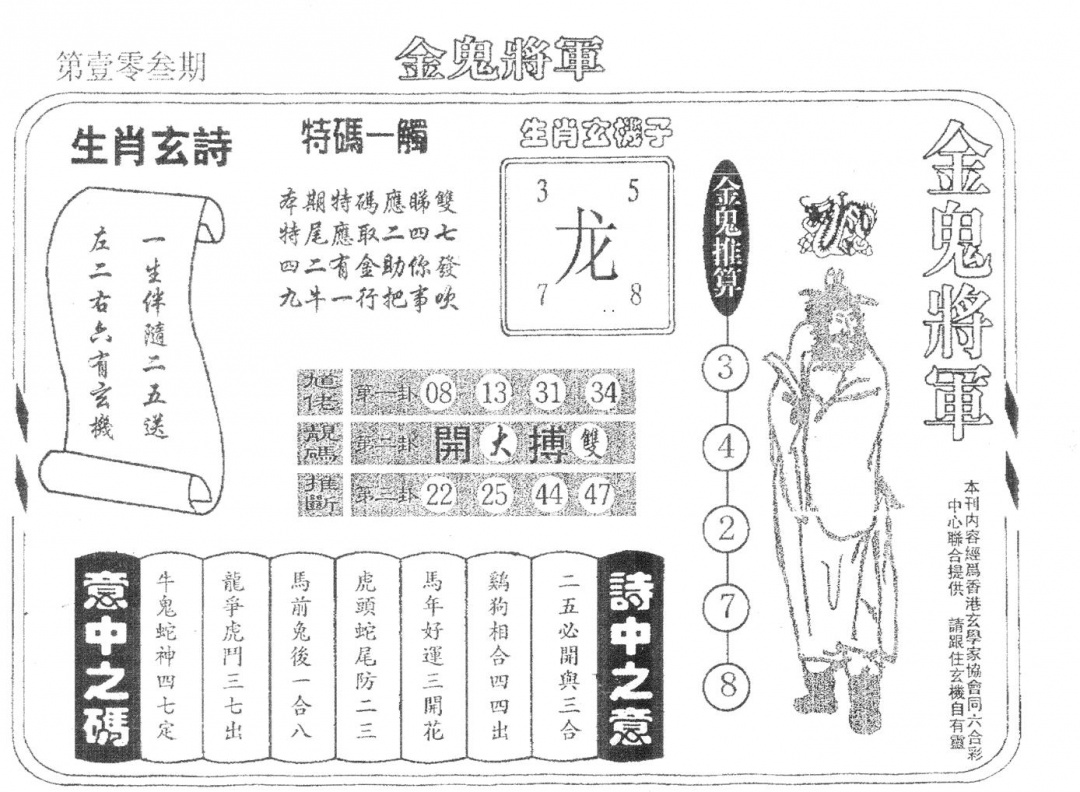 第壹零叁期
金鬼將軍
生肖玄詩
一生伴隨二五送
左二右六有玄機
特碼一觸
本期特碼應睇雙
特尾應取二四七
四二有金助你發
九牛一行把事吹
生肖玄機子
3 5
龙
7 8
金鬼推算
3
4
2
7
8
金鬼將軍
本刊内容經爲香港玄學家協會同六合彩
中心聯合提供 請跟住玄機自有靈
靚碼
推斷
第一卦 08 13 31 34
第二卦 開 大 搏 雙
第三卦 22 25 44 47
詩中之意
二五必開與三合
鷄狗相合四四出
馬年好運三開花
虎頭蛇尾防二三
馬前兔後一合八
龍爭虎鬥三七出
牛鬼蛇神四七定
意中之碼